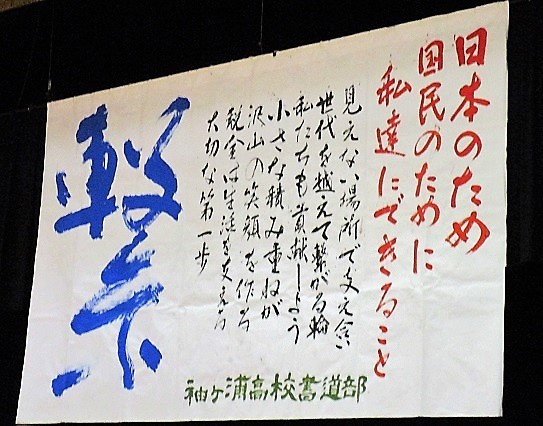 日本のため
国民のために
私達にできること
見えない場所で支え合い
世代を越えて繋がる輪
私たちも貢献しよう
小さな積み重ねが
沢山の笑顔を作る
税金は生活を支える
大切な第一歩
繋
袖ケ浦高校書道部